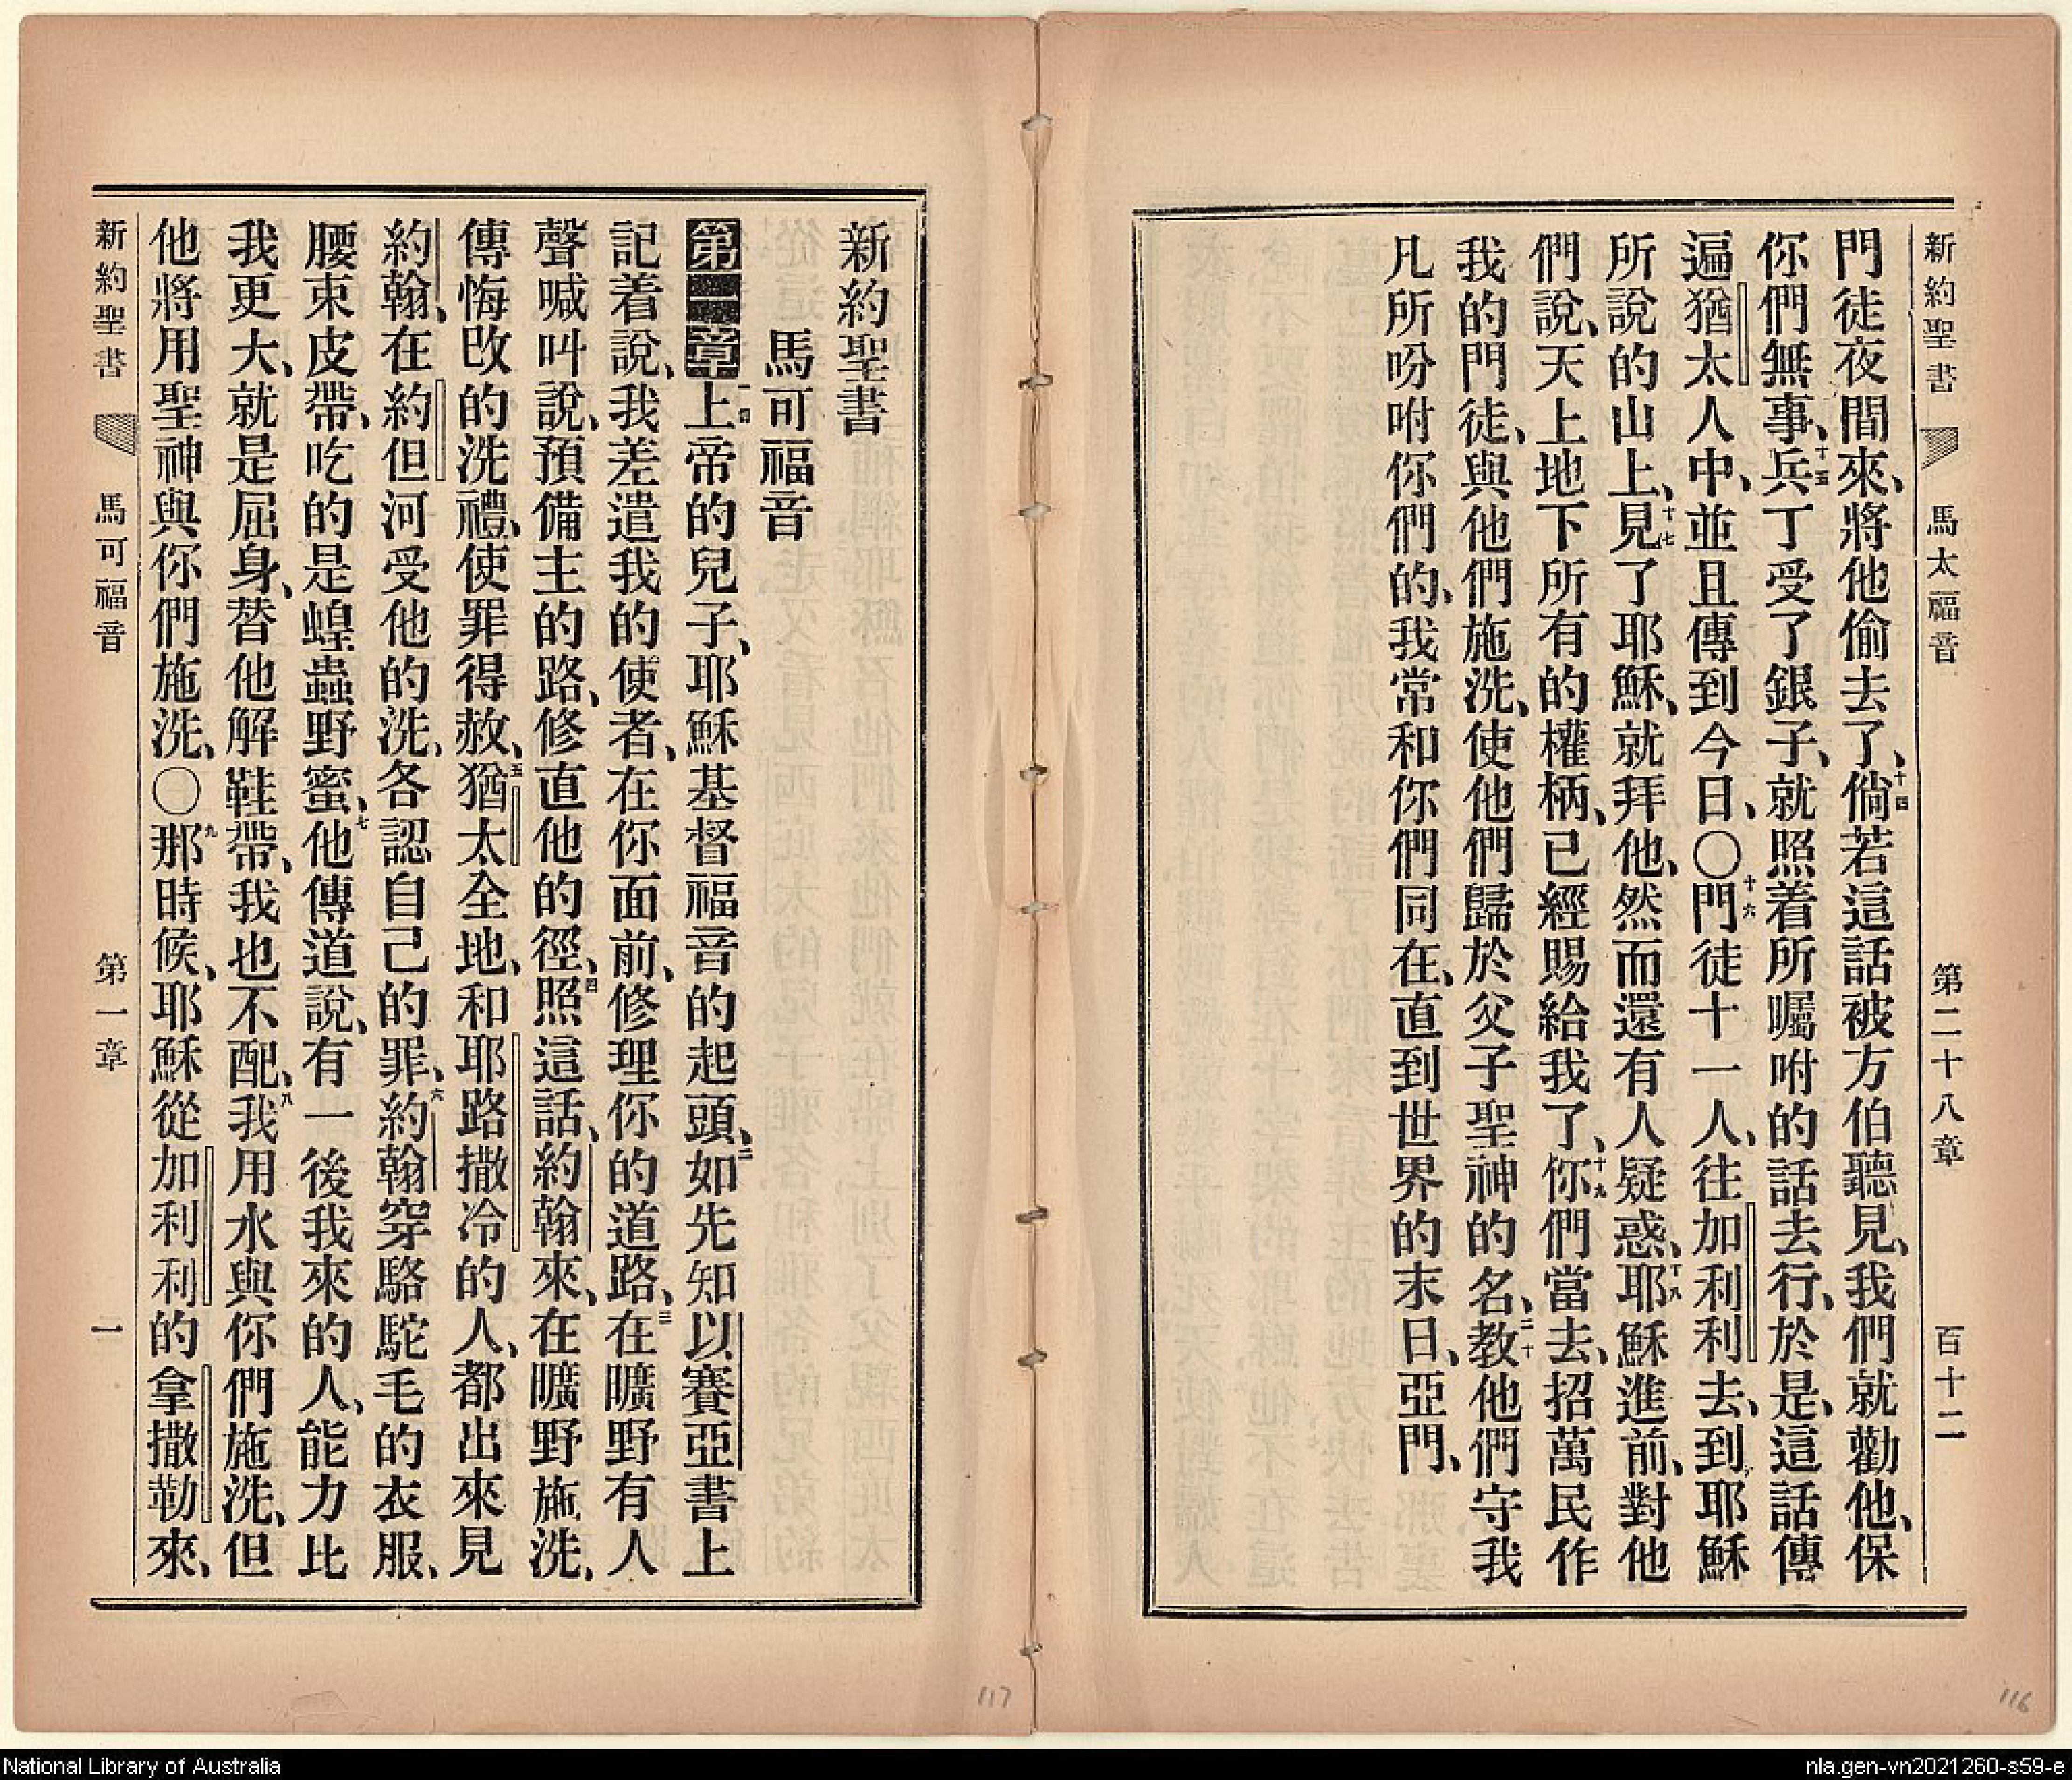 新約聖書 馬太福音 第二十八章 百十二
門徒夜間來、將他偷去了、十四倘若這話被方伯聽見、我們就勸他、保
你們無事、十五兵丁受了銀子、就照着所囑咐的話去行、於是、這話傳
遍猶太人中、並且傳到今日、〇十六門徒十一人、往加利利去、到耶穌
所說的山上、十七見了耶穌、就拜他、然而還有人疑惑、十八耶穌進前、對他
們說、天上地下所有的權柄、已經賜給我了、十九你們當去、招萬民作
我的門徒、與他們施洗、使他們歸於父子聖神的名、二十教他們守我
凡所吩咐你們的、我常和你們同在、直到世界的末日、亞門、
新約聖書
馬可福音
第一章一上帝的兒子、耶穌基督福音的起頭、二如先知以賽亞書上
記着說、我差遣我的使者、在你面前、修理你的道路、三在曠野有人
聲喊叫說、預備主的路、修直他的徑、四照這話、約翰來、在曠野施洗、
傳悔改的洗禮、使罪得赦、五猶太全地、和耶路撒冷的人、都出來見
約翰、在約但河受他的洗、各認自己的罪、六約翰穿駱駝毛的衣服、
腰束皮帶、吃的是蝗蟲野蜜、七他傳道說、有一後我來的人、能力比
我更大、就是屈身、替他解鞋帶、我也不配、八我用水與你們施洗、但
他將用聖神與你們施洗、〇九那時候、耶穌從加利利的拿撒勒來、
新約聖書 馬可福音 第一章 一
117
116
National Library of Australia
nla.gen-vn2021260-s59-e